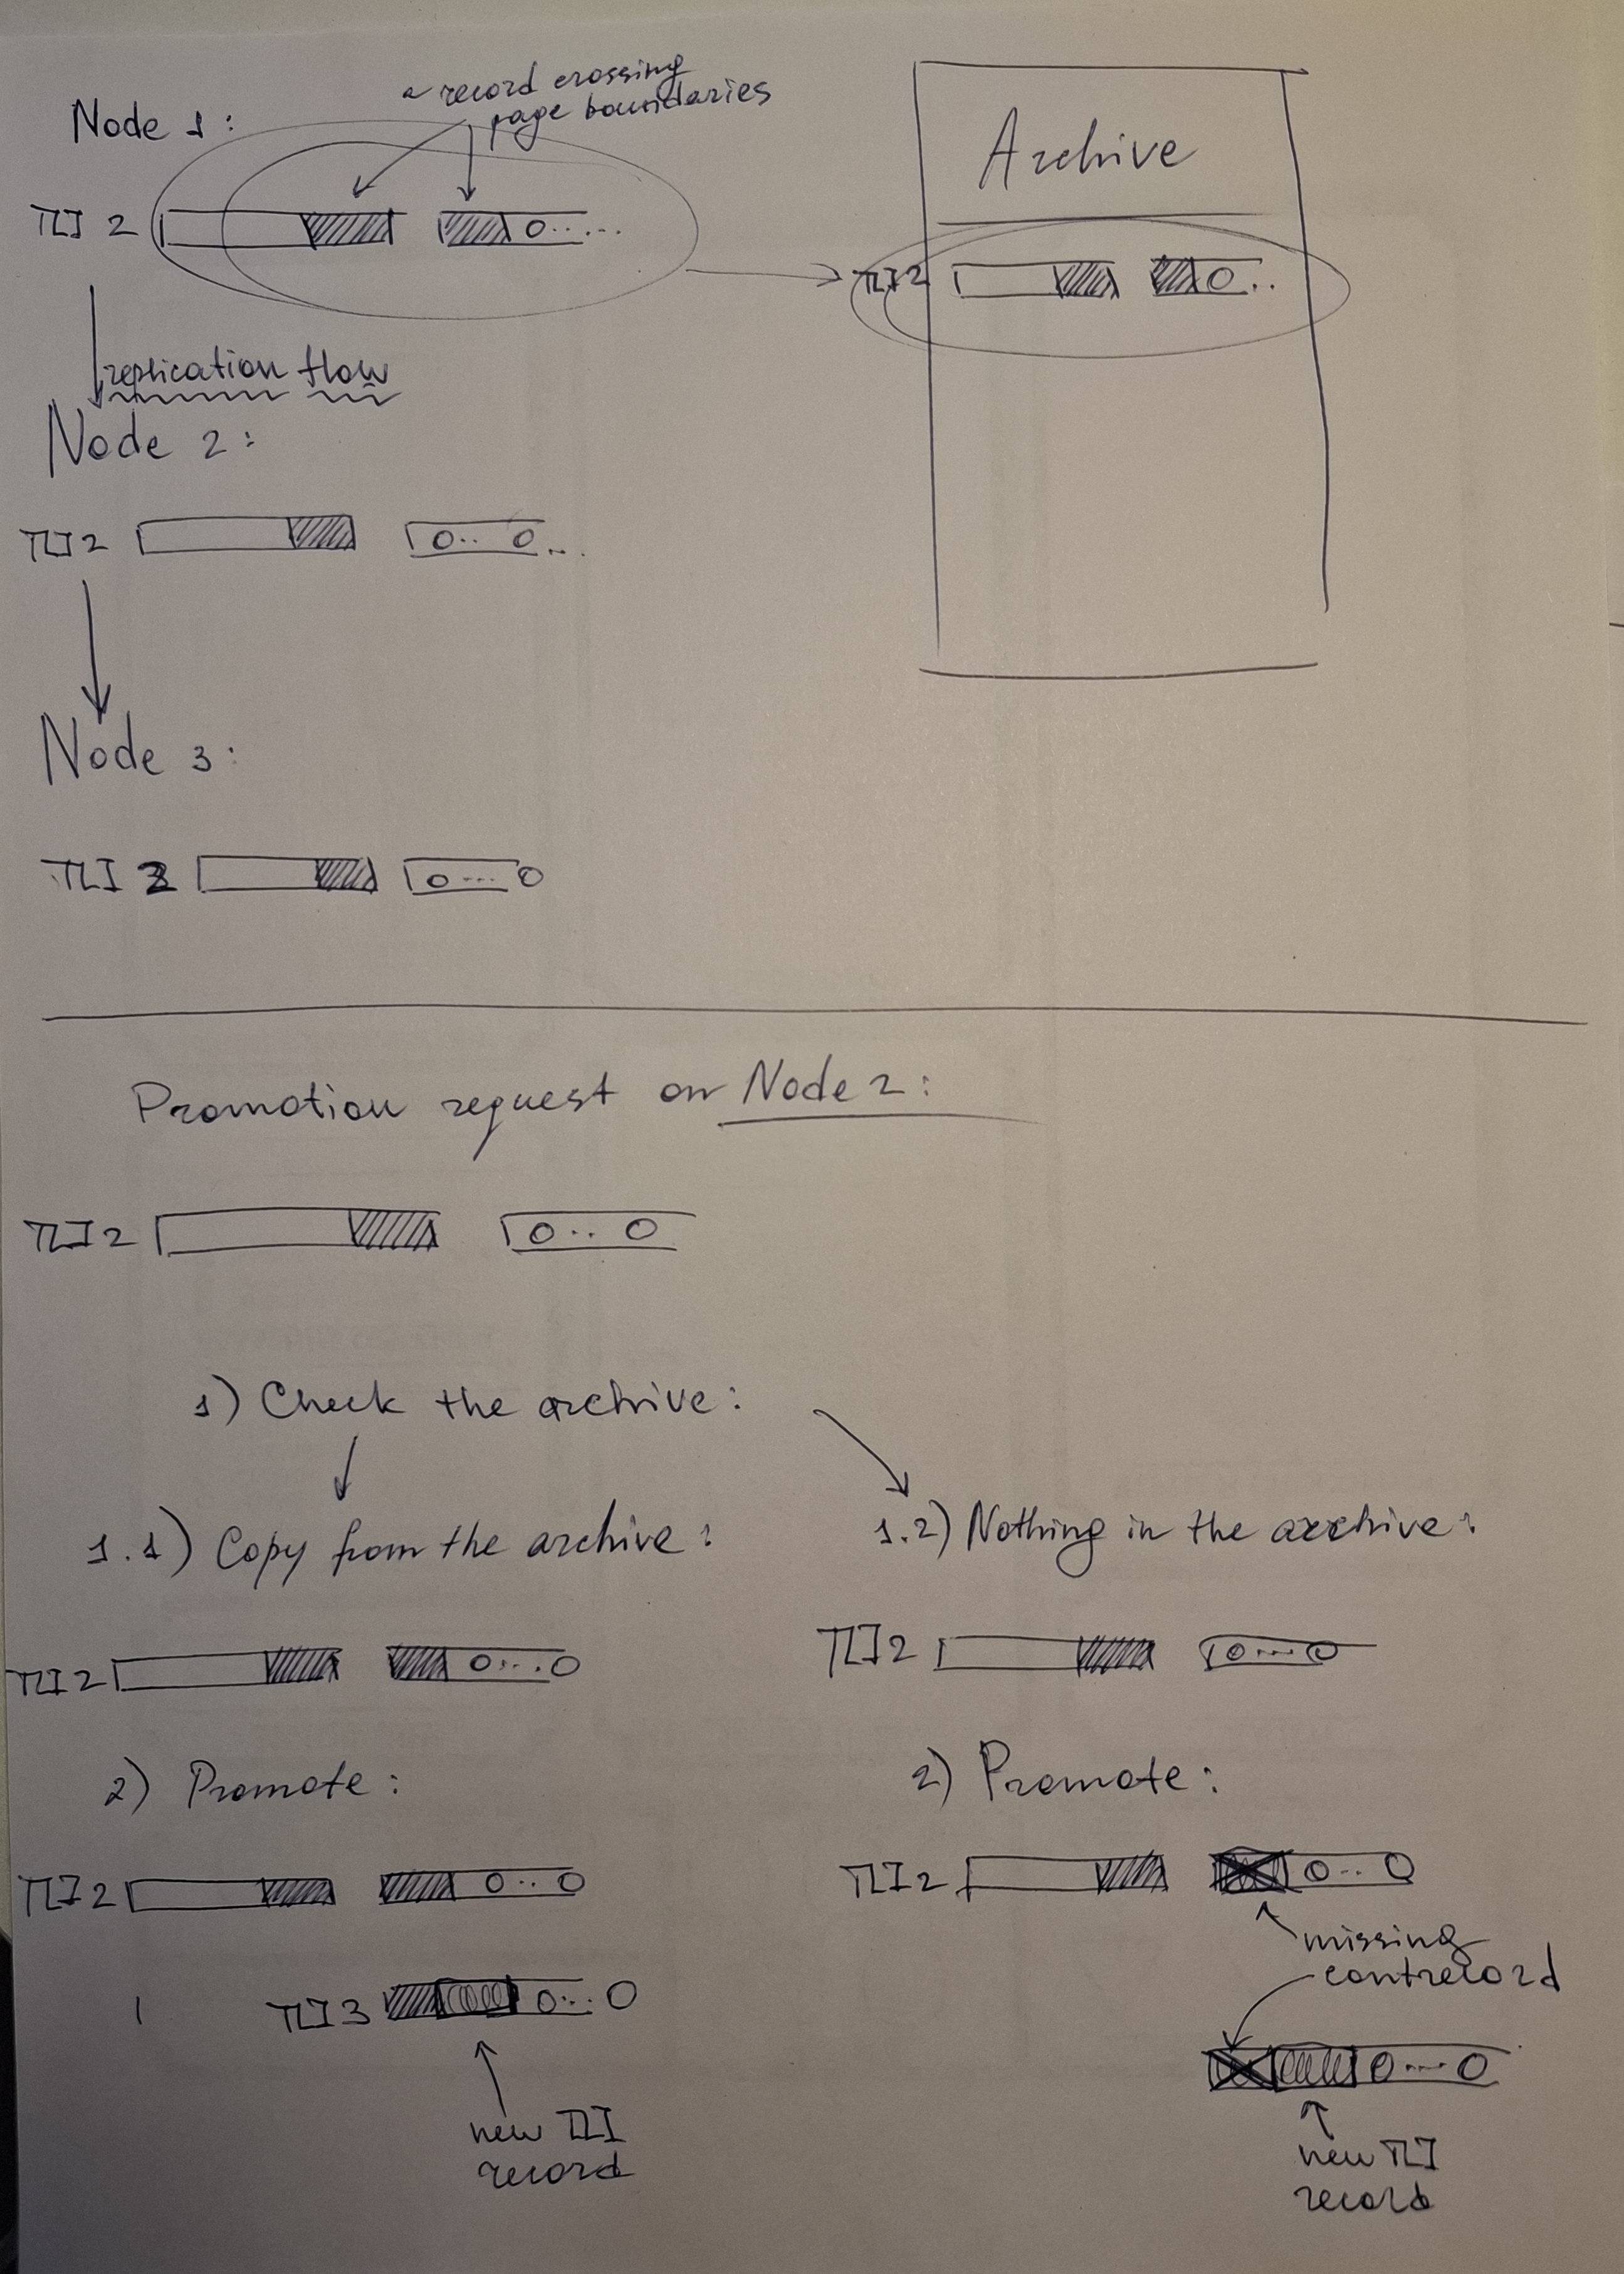 a record crossing
page boundaries
Node 1:
TLI 2 0.......
Archive
TLI 2 0...
replication flow
Node 2:
TLI 2 0.. 0...
Node 3:
TLI 2 0... 0
Promotion request on Node 2:
TLI 2 0... 0
1) Check the archive:
1.1) Copy from the archive:
1.2) Nothing in the archive:
TLI 2 0....0
TLI 2 0...0
2) Promote:
2) Promote:
TLI 2 0...0
TLI 2 0...0
missing
contrecord
TLI 3 0...0
0...0
new TLI
record
new TLI
record